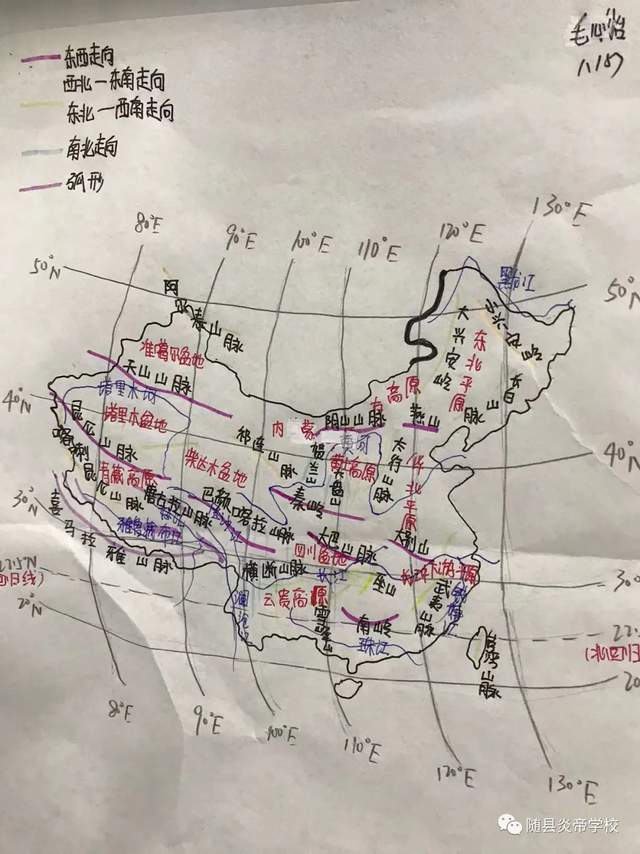 毛心怡
八187
东西走向
西北一东南走向
东北一西南走向
南北走向
弧形
80°E
90°E
100°E
110°E
120°E
130°E
50°N
50°N
黑龙江
阿尔泰山脉
小兴安岭
大兴安岭
东北平原
长白山
准噶尔盆地
天山山脉
塔里木河
塔里木盆地
40°N
40°N
昆仑山脉
喀喇昆仑山脉
青藏高原
祁连山脉
柴达木盆地
内蒙古高原
阴山山脉
燕山
贺兰山
黄河
黄土高原
六盘山
太行山脉
华北平原
30°N
唐古拉山脉
巴颜喀拉山脉
秦岭
喜马拉雅山脉
雅鲁藏布江
大巴山脉
大别山
四川盆地
横断山脉
长江
巫山
长江中下游平原
22.5°N
20°N
云贵高原
雪峰山
武夷山脉
南岭
珠江
澜沧江
台湾山脉
80°E
90°E
100°E
110°E
120°E
130°E
随县炎帝学校